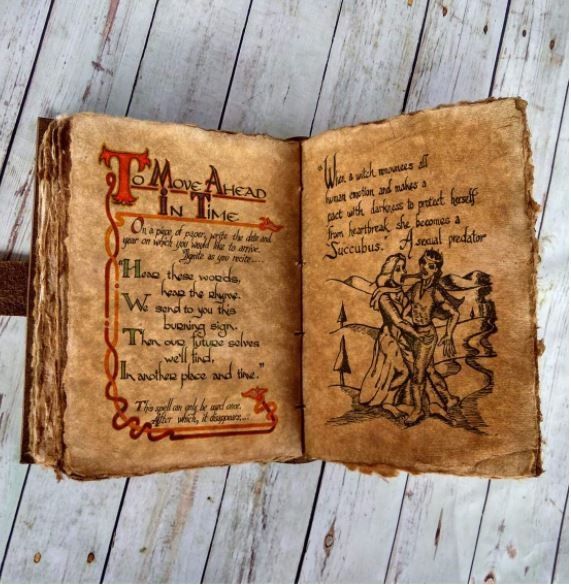 To Move Ahead
In Time
On a piece of paper, write the date and
year on which you would like to arrive.
Ignite as you recite....
"Hear these words,
hear the rhyme.
We send to you this
burning sign.
Then our future selves
we'll find,
In another place and time."
This spell can only be used once.
After which, it disappears...!
"When a witch renounces all
human emotion and makes a
pact with darkness to protect herself
from heartbreak she becomes a
Succubus. A sexual predator